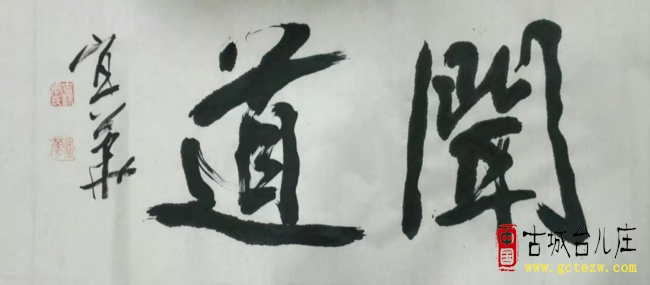 聞道
宜華
中国
古城台儿庄
www.gctezw.com